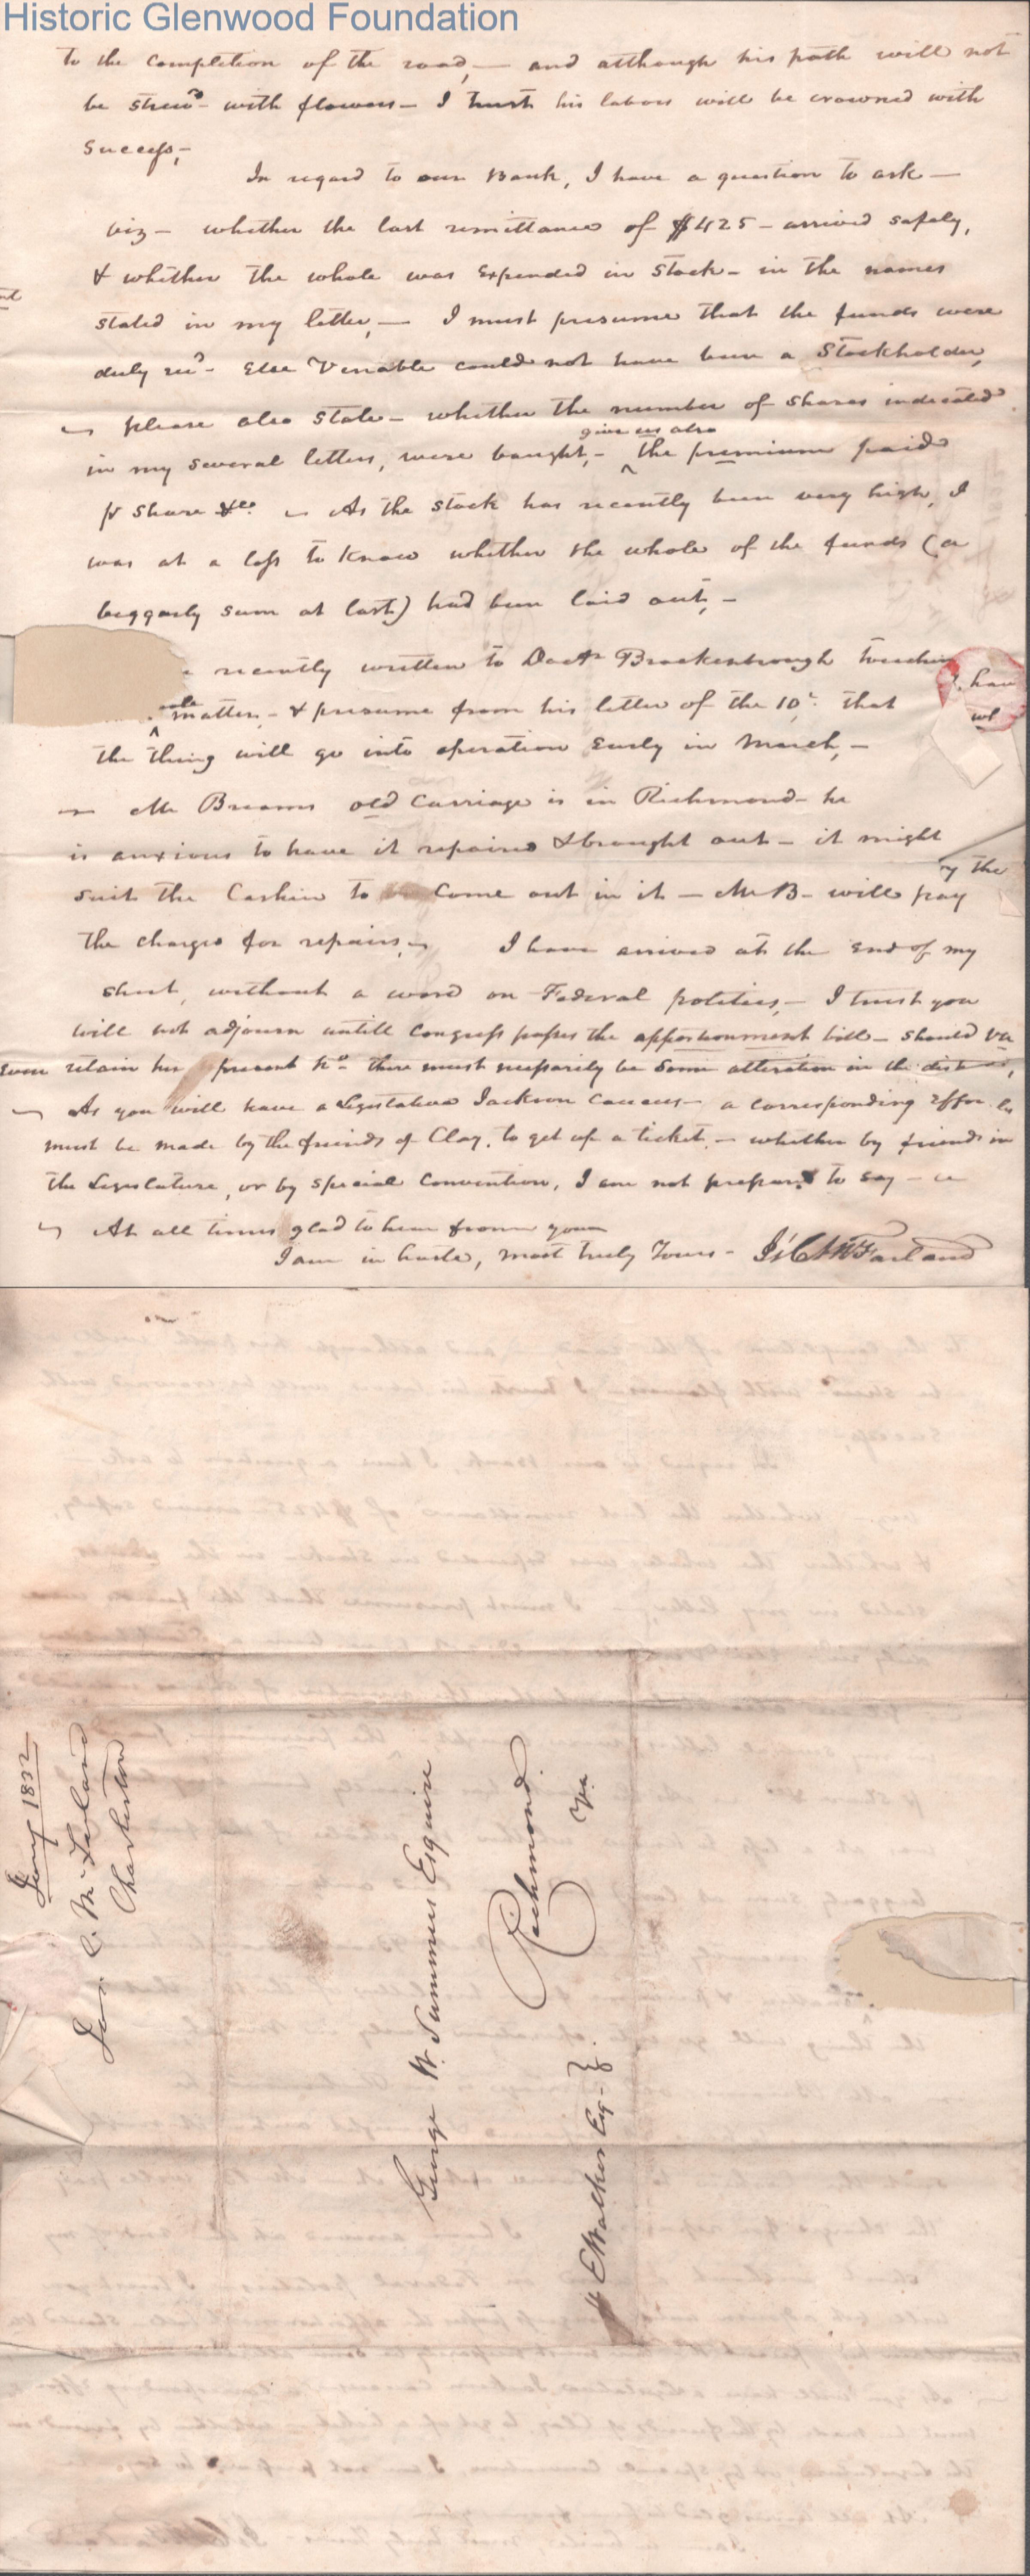 Historic Glenwood Foundation
to the completion of the road, — and although his path will not
be strew'd with flowers — I trust his labors will be crowned with
Success, —
In regard to our Bank, I have a question to ask —
viz — whether the last remittance of $425 — arrived safely,
& whether the whole was Expended in Stock — in the names
stated in my letter, — I must presume that the funds were
duly recd — Else Venable could not have been a Stockholder,
— please also State — whether the number of shares indicated
give us also
in my several letters, were bought, — ^ the premium paid
pr Share &c. — As the stock has recently been very high, I
was at a loss to know whether the whole of the funds (a
beggarly sum at last) had been laid out, —
recently written to Doctr Brockenbrough touching
I have
matter, — & presume from his letter of the 10th that
the thing will go into operation Early in March, —
— Mr Breams old Carriage is in Richmond — he
is anxious to have it repaired & brought out — it might
suit the Cashier to come out in it — Mr B — will pay
the charges for repairs, — I have arrived at the End of my
sheet, without a word on Federal politics, — I trust you
will not adjourn untill Congress passes the apportionment bill — should Va
Even retain her present No. there must necessarily be Some alteration in the
— As you will have a Legislative Jackson Caucus — a corresponding Effort
must be made by the friends of Clay, to get up a ticket, — whether by friends in
the Legislature, or by special Convention, I am not prepared to say —
— At all times glad to hear from you
I am in haste, most truly Yours — Js C McFarland
Jany 1832
Jas. C. McFarland
Charleston
George W. Summers Esquire
Richmond.
Va.
Walker Esq